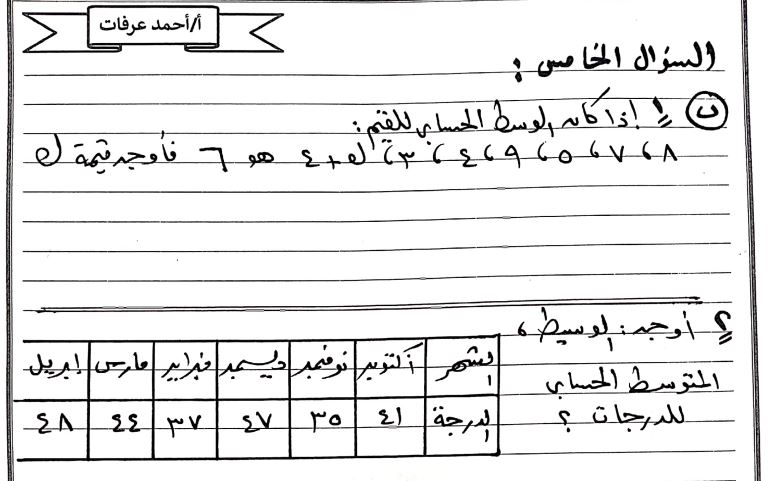 أ/أحمد عرفات
السؤال الخامس :
ت ١) إذا كان الوسط الحسابي للقيم :
٨ ، ٧ ، ٥ ، ٩ ، ٤ ، ٣ ، ك + ٤ هو ٦ فأوجد قيمة ك
٢) أوجد : الوسيط ،
المتوسط الحسابي
للدرجات ؟
الشهر أكتوبر نوفمبر ديسمبر فبراير مارس إبريل
الدرجة ٤١ ٣٥ ٤٧ ٣٧ ٤٤ ٤٨